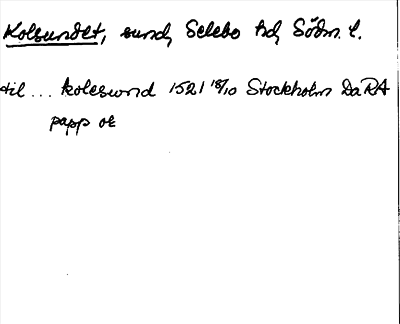 Kolsundet, sund, Selebo hd, Södm. l.
til ... koleswnd 1521 18/10 Stockholm DaRA
papp or